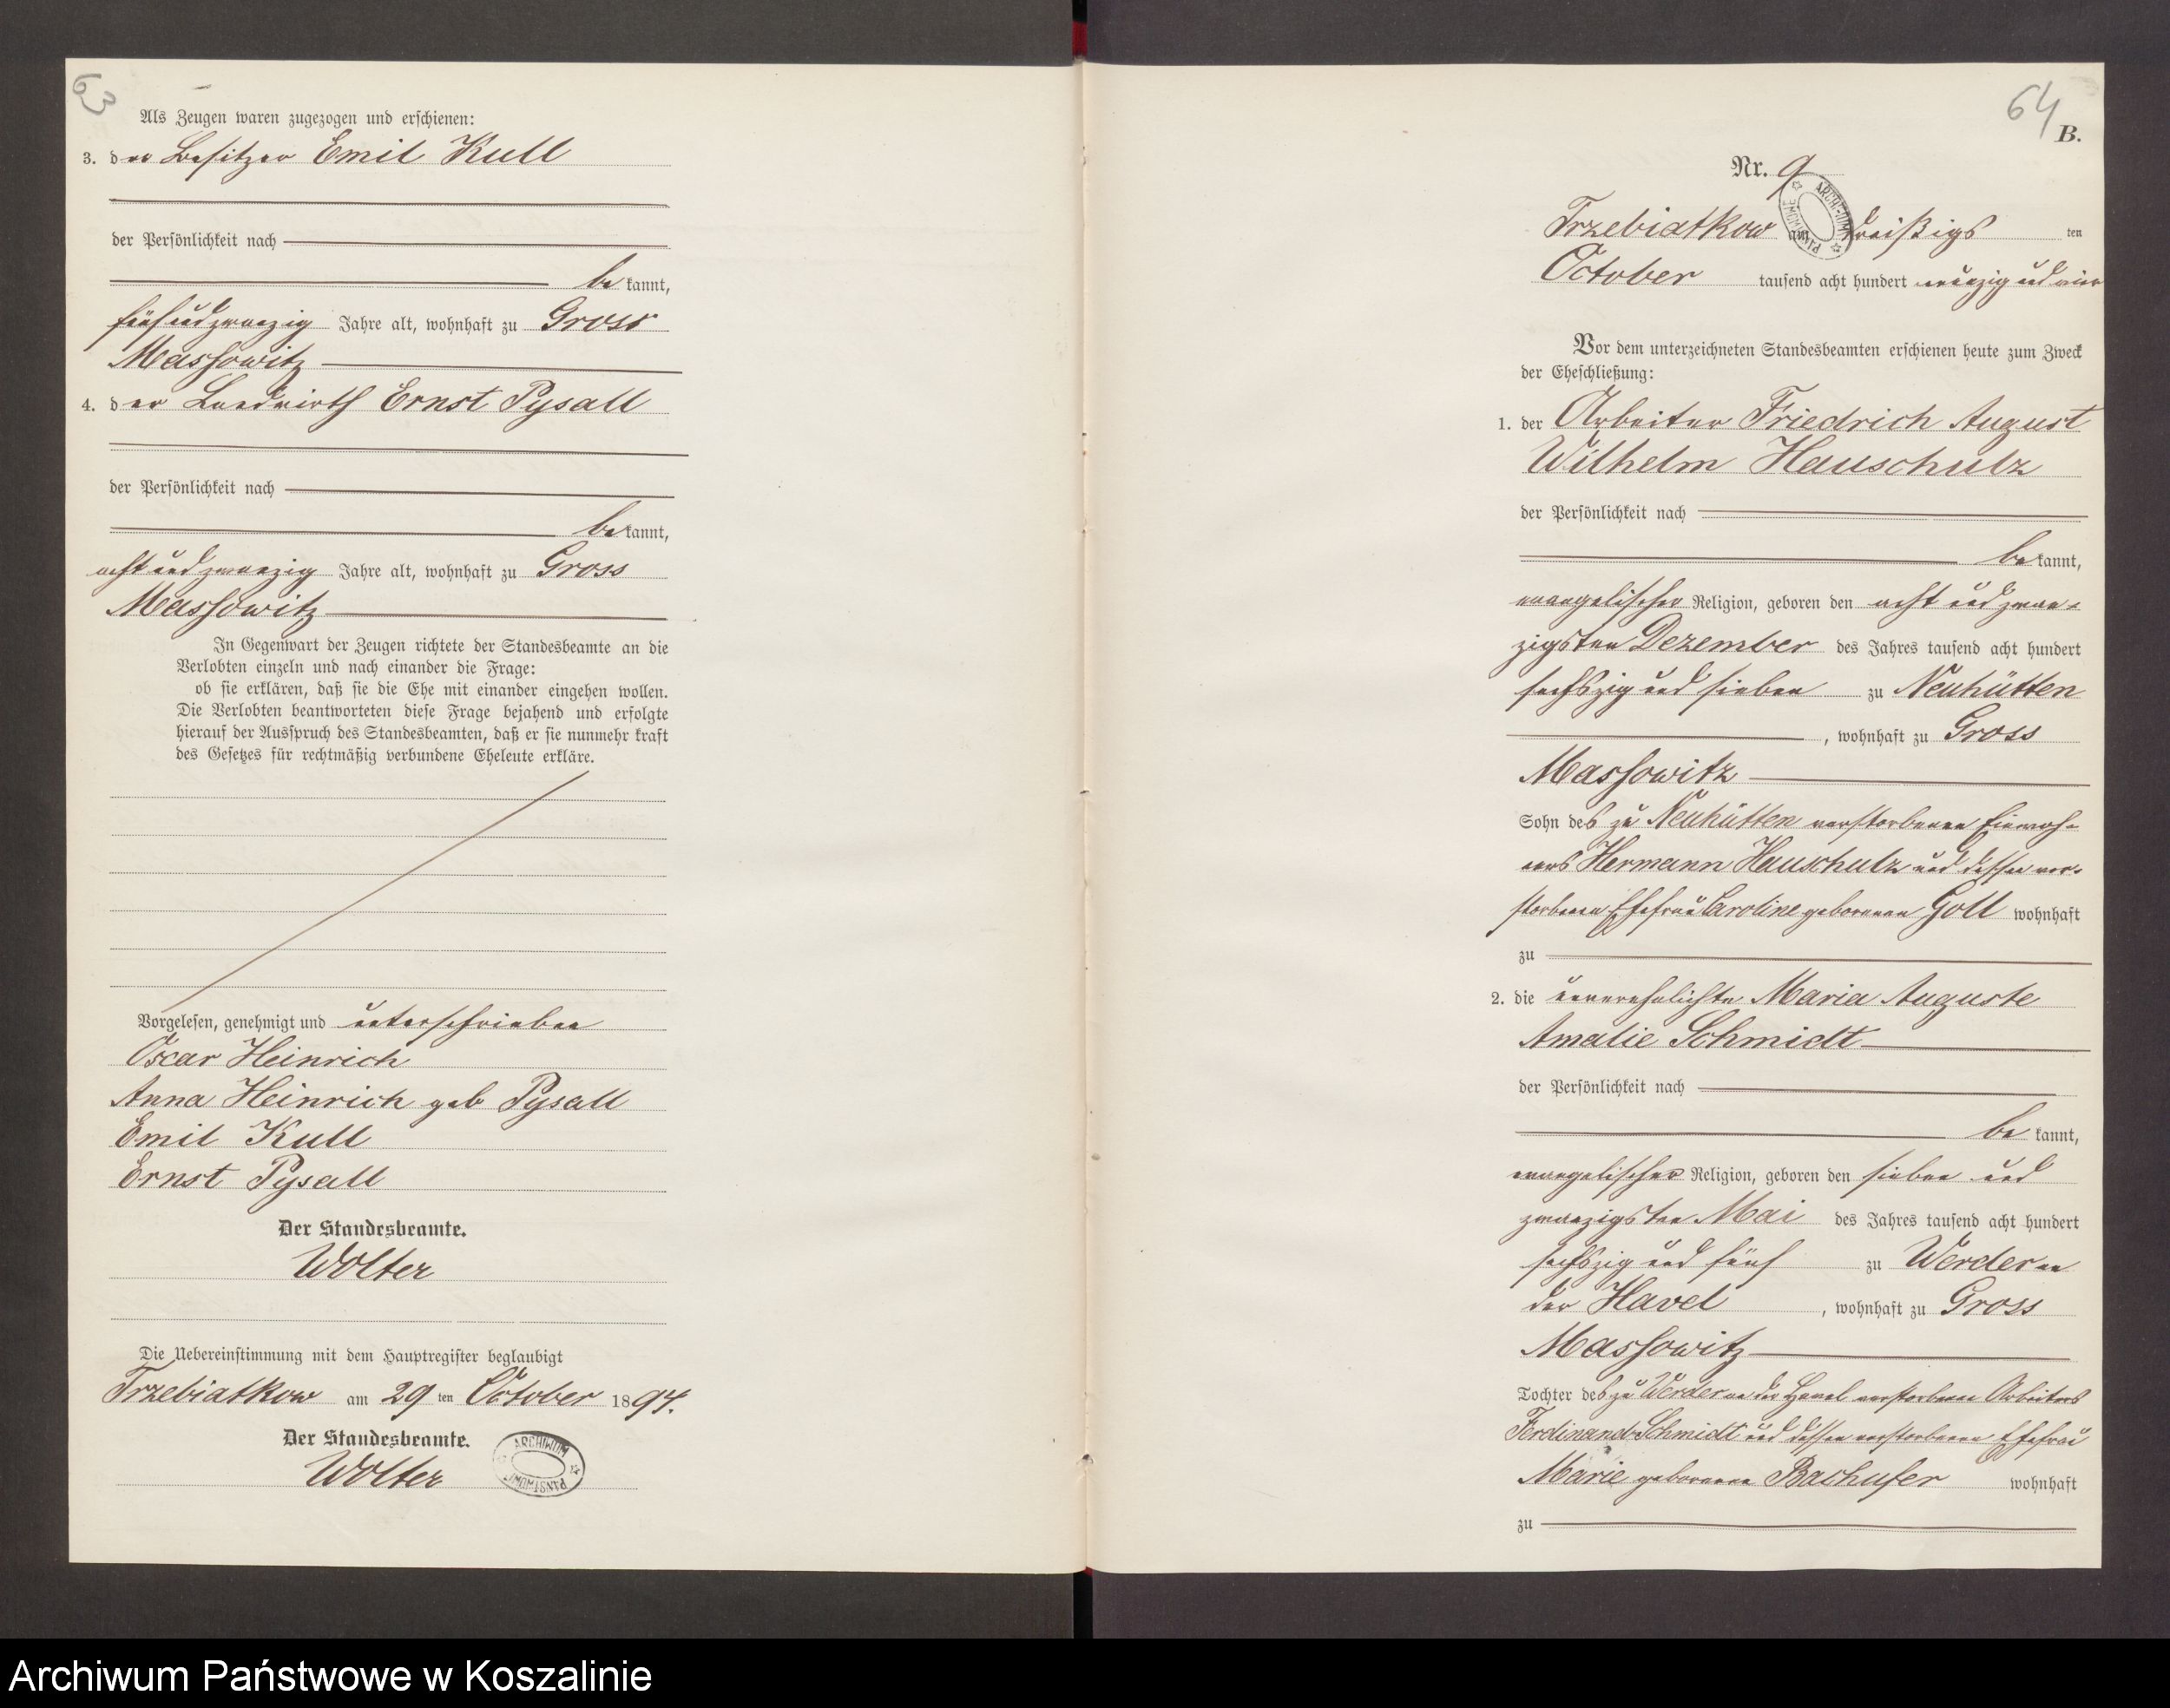 63
Als Zeugen waren zugezogen und erschienen:
3. der Besitzer Emil Kull
der Persönlichkeit nach
bekannt,
fünfundzwanzig Jahre alt, wohnhaft zu Gross
Massowitz
4. der Landwirth Ernst Pysall
der Persönlichkeit nach
bekannt,
acht und zwanzig Jahre alt, wohnhaft zu Gross
Massowitz
In Gegenwart der Zeugen richtete der Standesbeamte an die
Verlobten einzeln und nach einander die Frage:
ob sie erklären, daß sie die Ehe mit einander eingehen wollen.
Die Verlobten beantworteten diese Frage bejahend und erfolgte
hierauf der Ausspruch des Standesbeamten, daß er sie nunmehr kraft
des Gesetzes für rechtmäßig verbundene Eheleute erkläre.
Vorgelesen, genehmigt und unterschrieben
Oscar Heinrich
Anna Heinrich geb Pysall
Emil Kull
Ernst Pysall
Der Standesbeamte.
Wolter
Die Uebereinstimmung mit dem Hauptregister beglaubigt
Trzebiatkow am 29 ten October 1894.
Der Standesbeamte.
Wolter
ARCHIWUM PAŃSTWOWE
64
B.
Nr. 9
ARCHIWUM PAŃSTWOWE
Trzebiatkow am dreißigs ten
October tausend acht hundert neunzig und vier
Vor dem unterzeichneten Standesbeamten erschienen heute zum Zweck
der Eheschließung:
1. der Arbeiter Friedrich August
Wilhelm Hauschulz
der Persönlichkeit nach
bekannt,
evangelischer Religion, geboren den acht und zwan-
zigsten Dezember des Jahres tausend acht hundert
sechszig und sieben zu Neuhütten
, wohnhaft zu Gross
Massowitz
Sohn des zu Neuhütten verstorbenen Einwoh-
ners Hermann Hauschulz und dessen ver-
storbenen Ehefrau Caroline geborenen Goll wohnhaft
zu
2. die unverehelichte Maria Auguste
Amalie Schmidt
der Persönlichkeit nach
bekannt,
evangelischer Religion, geboren den sieben und
zwanzigsten Mai des Jahres tausend acht hundert
sechszig und fünf zu Werder an
der Havel , wohnhaft zu Gross
Massowitz
Tochter des zu Werder an der Havel verstorbenen Arbeiters
Ferdinand Schmidt und dessen verstorbenen Ehefrau
Marie geborenen Bachufer wohnhaft
zu
Archiwum Państwowe w Koszalinie